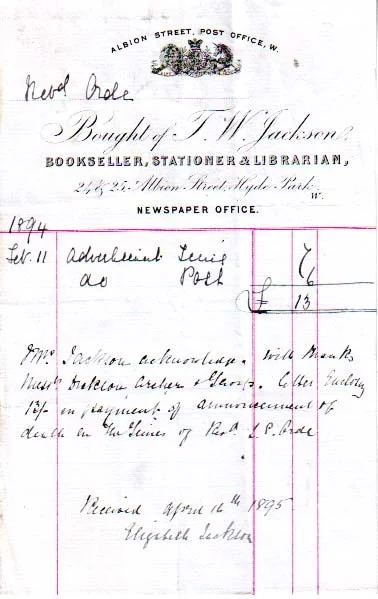 ALBION STREET, POST OFFICE, W.
Revd Orde
Bought of T. W. Jackson,
BOOKSELLER, STATIONER & LIBRARIAN,
24 & 25 Albion Street, Hyde Park,
W.
NEWSPAPER OFFICE.
1894
Feb. 11 Advertisement Times 7
do Post 6
£ 13
Mrs Jackson acknowledges with thanks
Messrs Dickson, Archer & Thorp's letter Enclosing
13/- in payment of announcement of
death in the Times of Revd L. S. Orde
Received April 16th 1895
Elizabeth Jackson